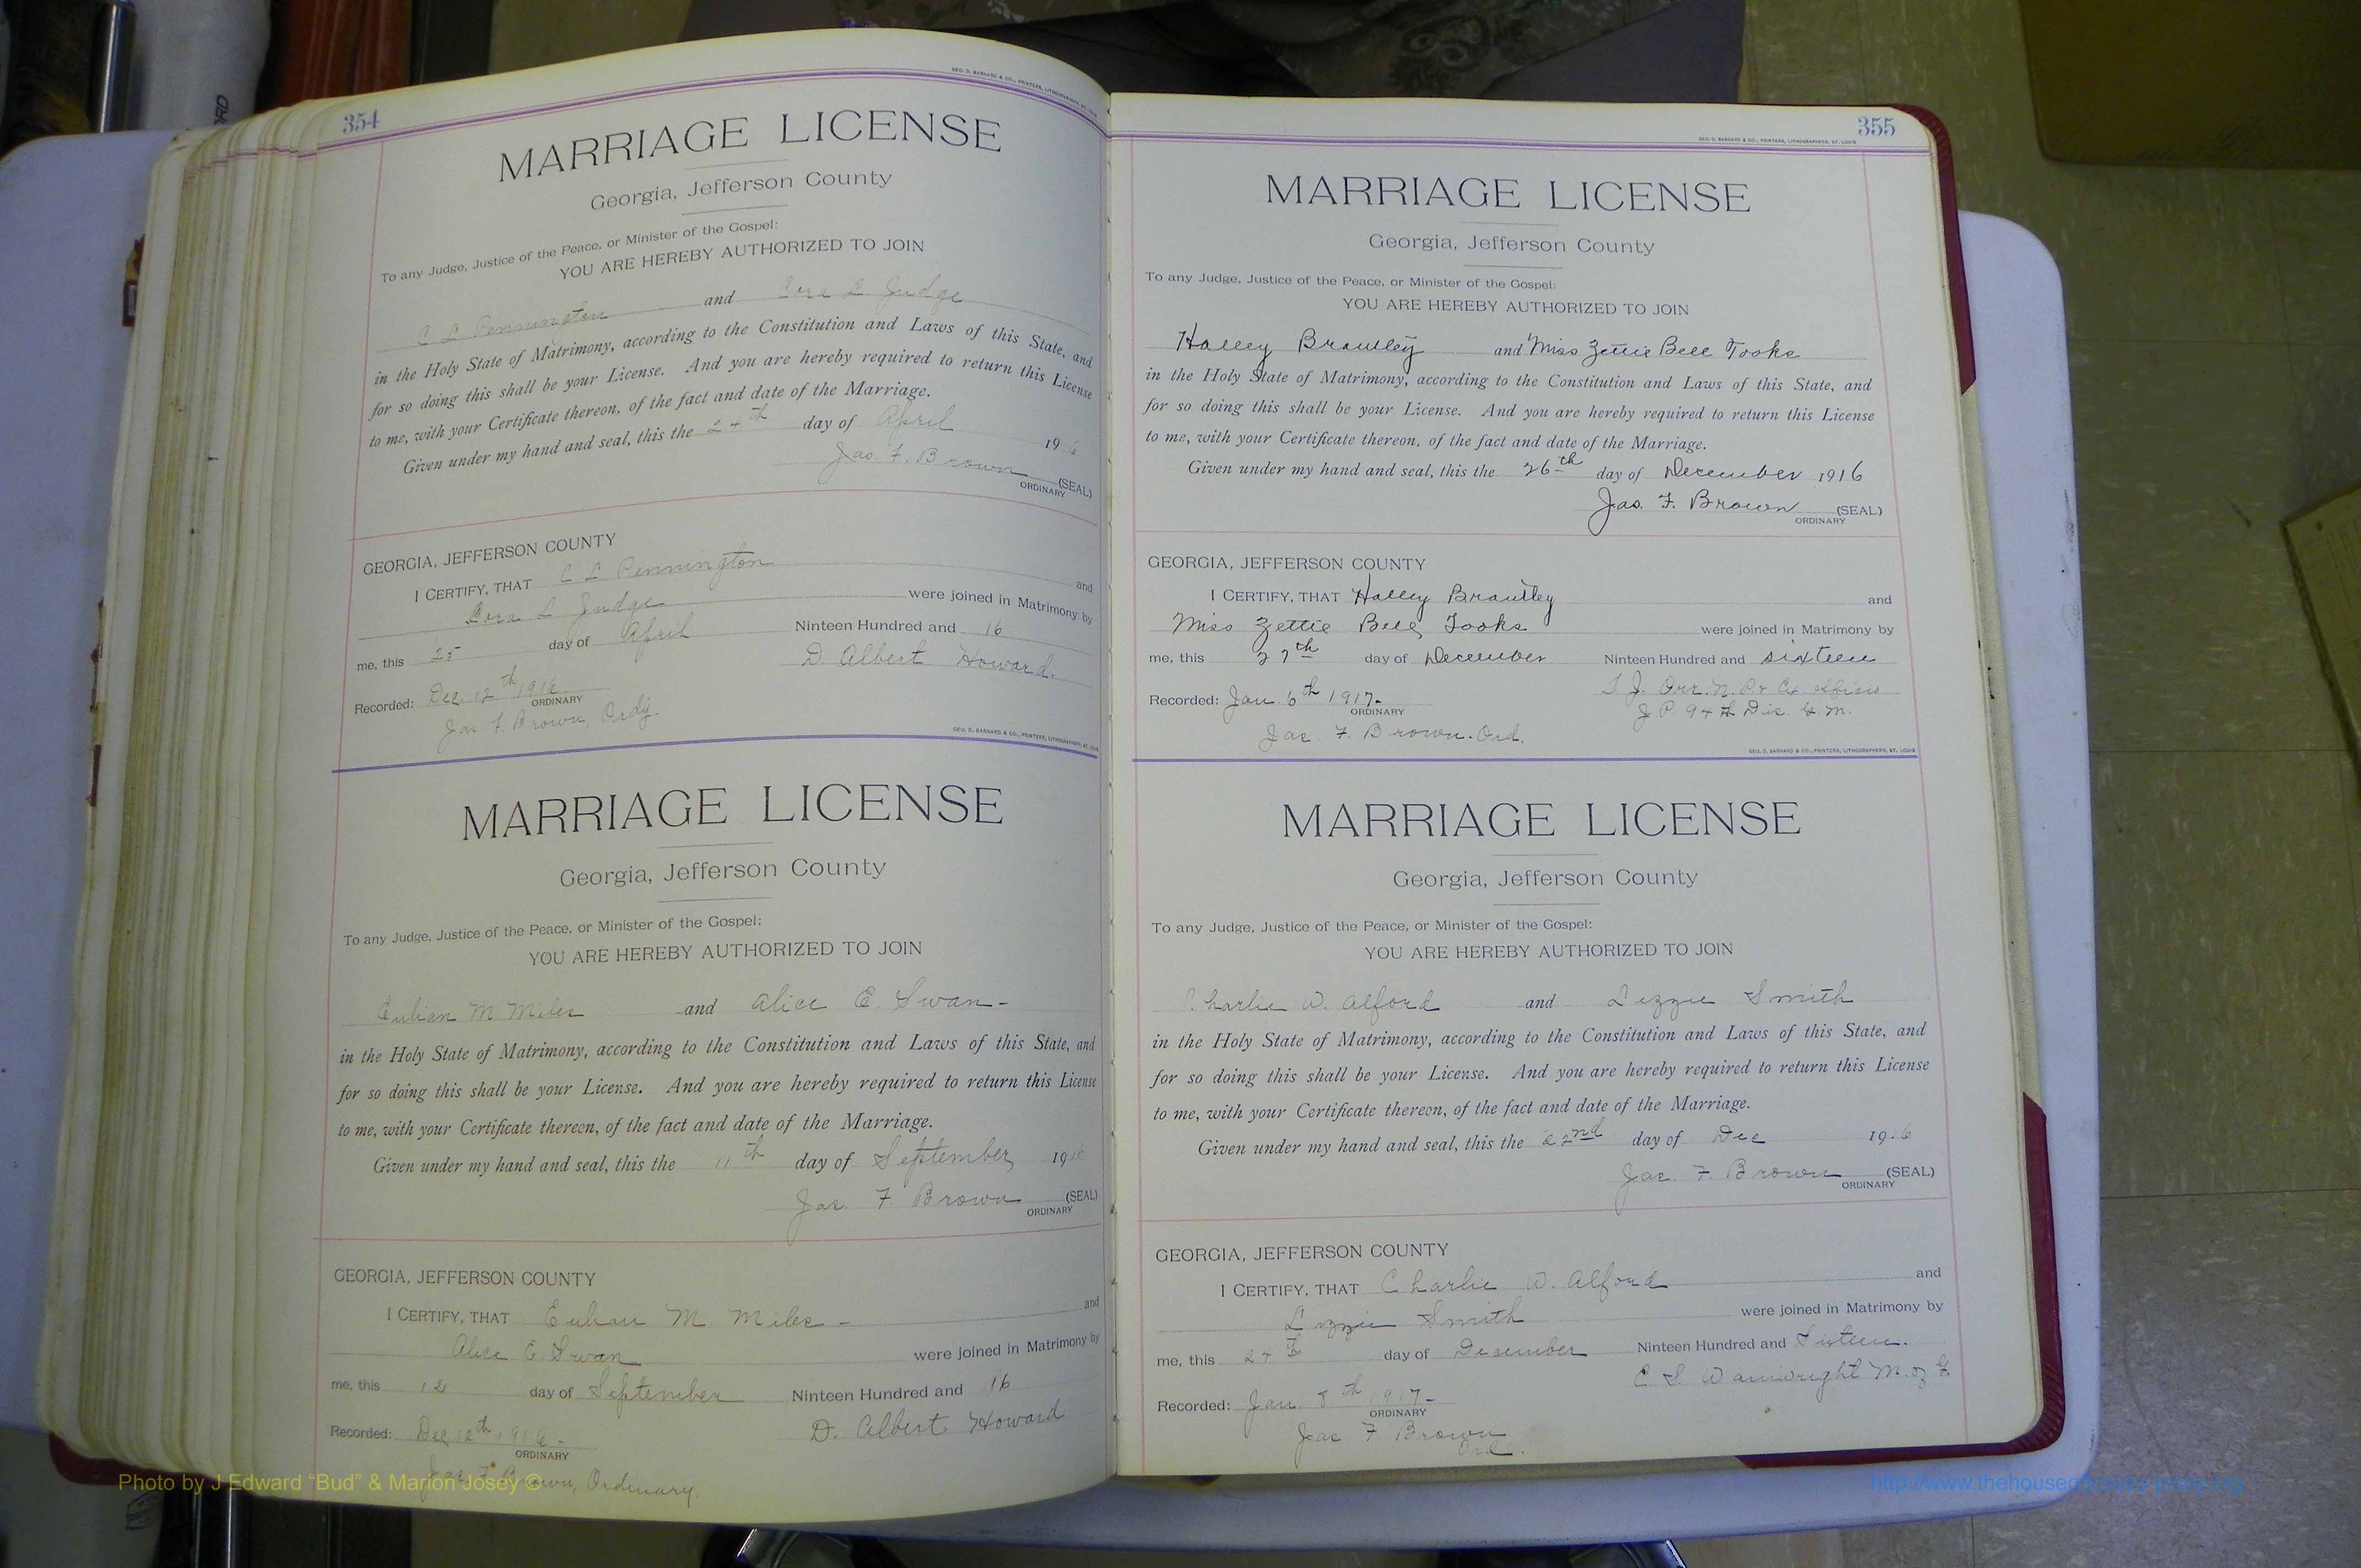 354
GEO. D. BARNARD & CO., PRINTERS, LITHOGRAPHERS, ST. LOUIS
MARRIAGE LICENSE
Georgia, Jefferson County
To any Judge, Justice of the Peace, or Minister of the Gospel:
YOU ARE HEREBY AUTHORIZED TO JOIN
C L Pennington and Cora L. Judge
in the Holy State of Matrimony, according to the Constitution and Laws of this State, and
for so doing this shall be your License. And you are hereby required to return this License
to me, with your Certificate thereon, of the fact and date of the Marriage.
Given under my hand and seal, this the 24th day of April 1916
Jas. F. Brown (SEAL)
ORDINARY
GEORGIA, JEFFERSON COUNTY
I CERTIFY, THAT C L Pennington and
Cora L Judge were joined in Matrimony by
me, this 25 day of April Ninteen Hundred and 16
D. Albert Howard.
Recorded: Dec. 12th 1916
ORDINARY
Jas F Brown, Ordy.
GEO. D. BARNARD & CO., PRINTERS, LITHOGRAPHERS, ST. LOUIS
MARRIAGE LICENSE
Georgia, Jefferson County
To any Judge, Justice of the Peace, or Minister of the Gospel:
YOU ARE HEREBY AUTHORIZED TO JOIN
M Miles and Alice E. Swan-
in the Holy State of Matrimony, according to the Constitution and Laws of this State, and
for so doing this shall be your License. And you are hereby required to return this License
to me, with your Certificate thereon, of the fact and date of the Marriage.
Given under my hand and seal, this the 11th day of September 1916
Jas. F. Brown (SEAL)
ORDINARY
GEORGIA, JEFFERSON COUNTY
I CERTIFY, THAT M Miles - and
Alice E. Swan were joined in Matrimony by
me, this 12 day of September Ninteen Hundred and 16
D. Albert Howard
Recorded: Dec 12th 1916 -
ORDINARY
Jas F Brown, Ordinary.
355
GEO. D. BARNARD & CO., PRINTERS, LITHOGRAPHERS, ST. LOUIS
MARRIAGE LICENSE
Georgia, Jefferson County
To any Judge, Justice of the Peace, or Minister of the Gospel:
YOU ARE HEREBY AUTHORIZED TO JOIN
Halley Brantley and Miss Zettie Bell Tooks
in the Holy State of Matrimony, according to the Constitution and Laws of this State, and
for so doing this shall be your License. And you are hereby required to return this License
to me, with your Certificate thereon, of the fact and date of the Marriage.
Given under my hand and seal, this the 26th day of December 1916
Jas. F. Brown (SEAL)
ORDINARY
GEORGIA, JEFFERSON COUNTY
I CERTIFY, THAT Halley Brantley and
Miss Zettie Bell Tooks were joined in Matrimony by
me, this 27th day of December Ninteen Hundred and sixteen
J. Orr. N. P. & Ex officio
Recorded: Jan. 6th 1917-
ORDINARY
J. P. 94th Dis. G. M.
Jas F. Brown. Ord.
GEO. D. BARNARD & CO., PRINTERS, LITHOGRAPHERS, ST. LOUIS
MARRIAGE LICENSE
Georgia, Jefferson County
To any Judge, Justice of the Peace, or Minister of the Gospel:
YOU ARE HEREBY AUTHORIZED TO JOIN
Charlie W. Alford and Lizzie Smith
in the Holy State of Matrimony, according to the Constitution and Laws of this State, and
for so doing this shall be your License. And you are hereby required to return this License
to me, with your Certificate thereon, of the fact and date of the Marriage.
Given under my hand and seal, this the 22nd day of Dec 1916
Jas. F. Brown (SEAL)
ORDINARY
GEORGIA, JEFFERSON COUNTY
I CERTIFY, THAT Charlie W. Alford and
Lizzie Smith were joined in Matrimony by
me, this 24th day of December Ninteen Hundred and Sixteen.
C. S. Wainwright M. of G
Recorded: Jan. 8th 1917-
ORDINARY
Jas F Brown
Ord.
Photo by J Edward “Bud” & Marion Josey ©